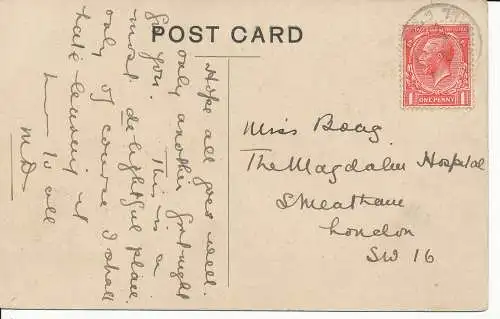 POST CARD
Hope all goes well.
only another fortnight
for you. This is a
most delightful place.
only of course I shall
hate leaving it
to all
MD
POSTAGE REVENUE
1 ONE PENNY 1
Miss Boag
The Magdalen Hospital
Streatham
London
SW 16